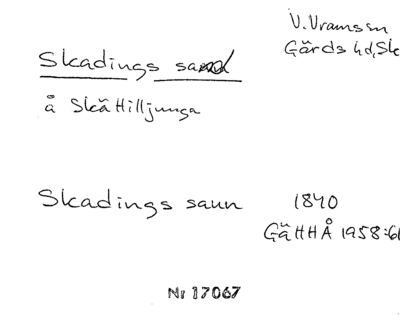 V. Vramssn
Gärds hd, Sk
Skadings sand
å Skättilljunga
Skadings saun 1840
GäHHÅ 1958:61
Nr 17067